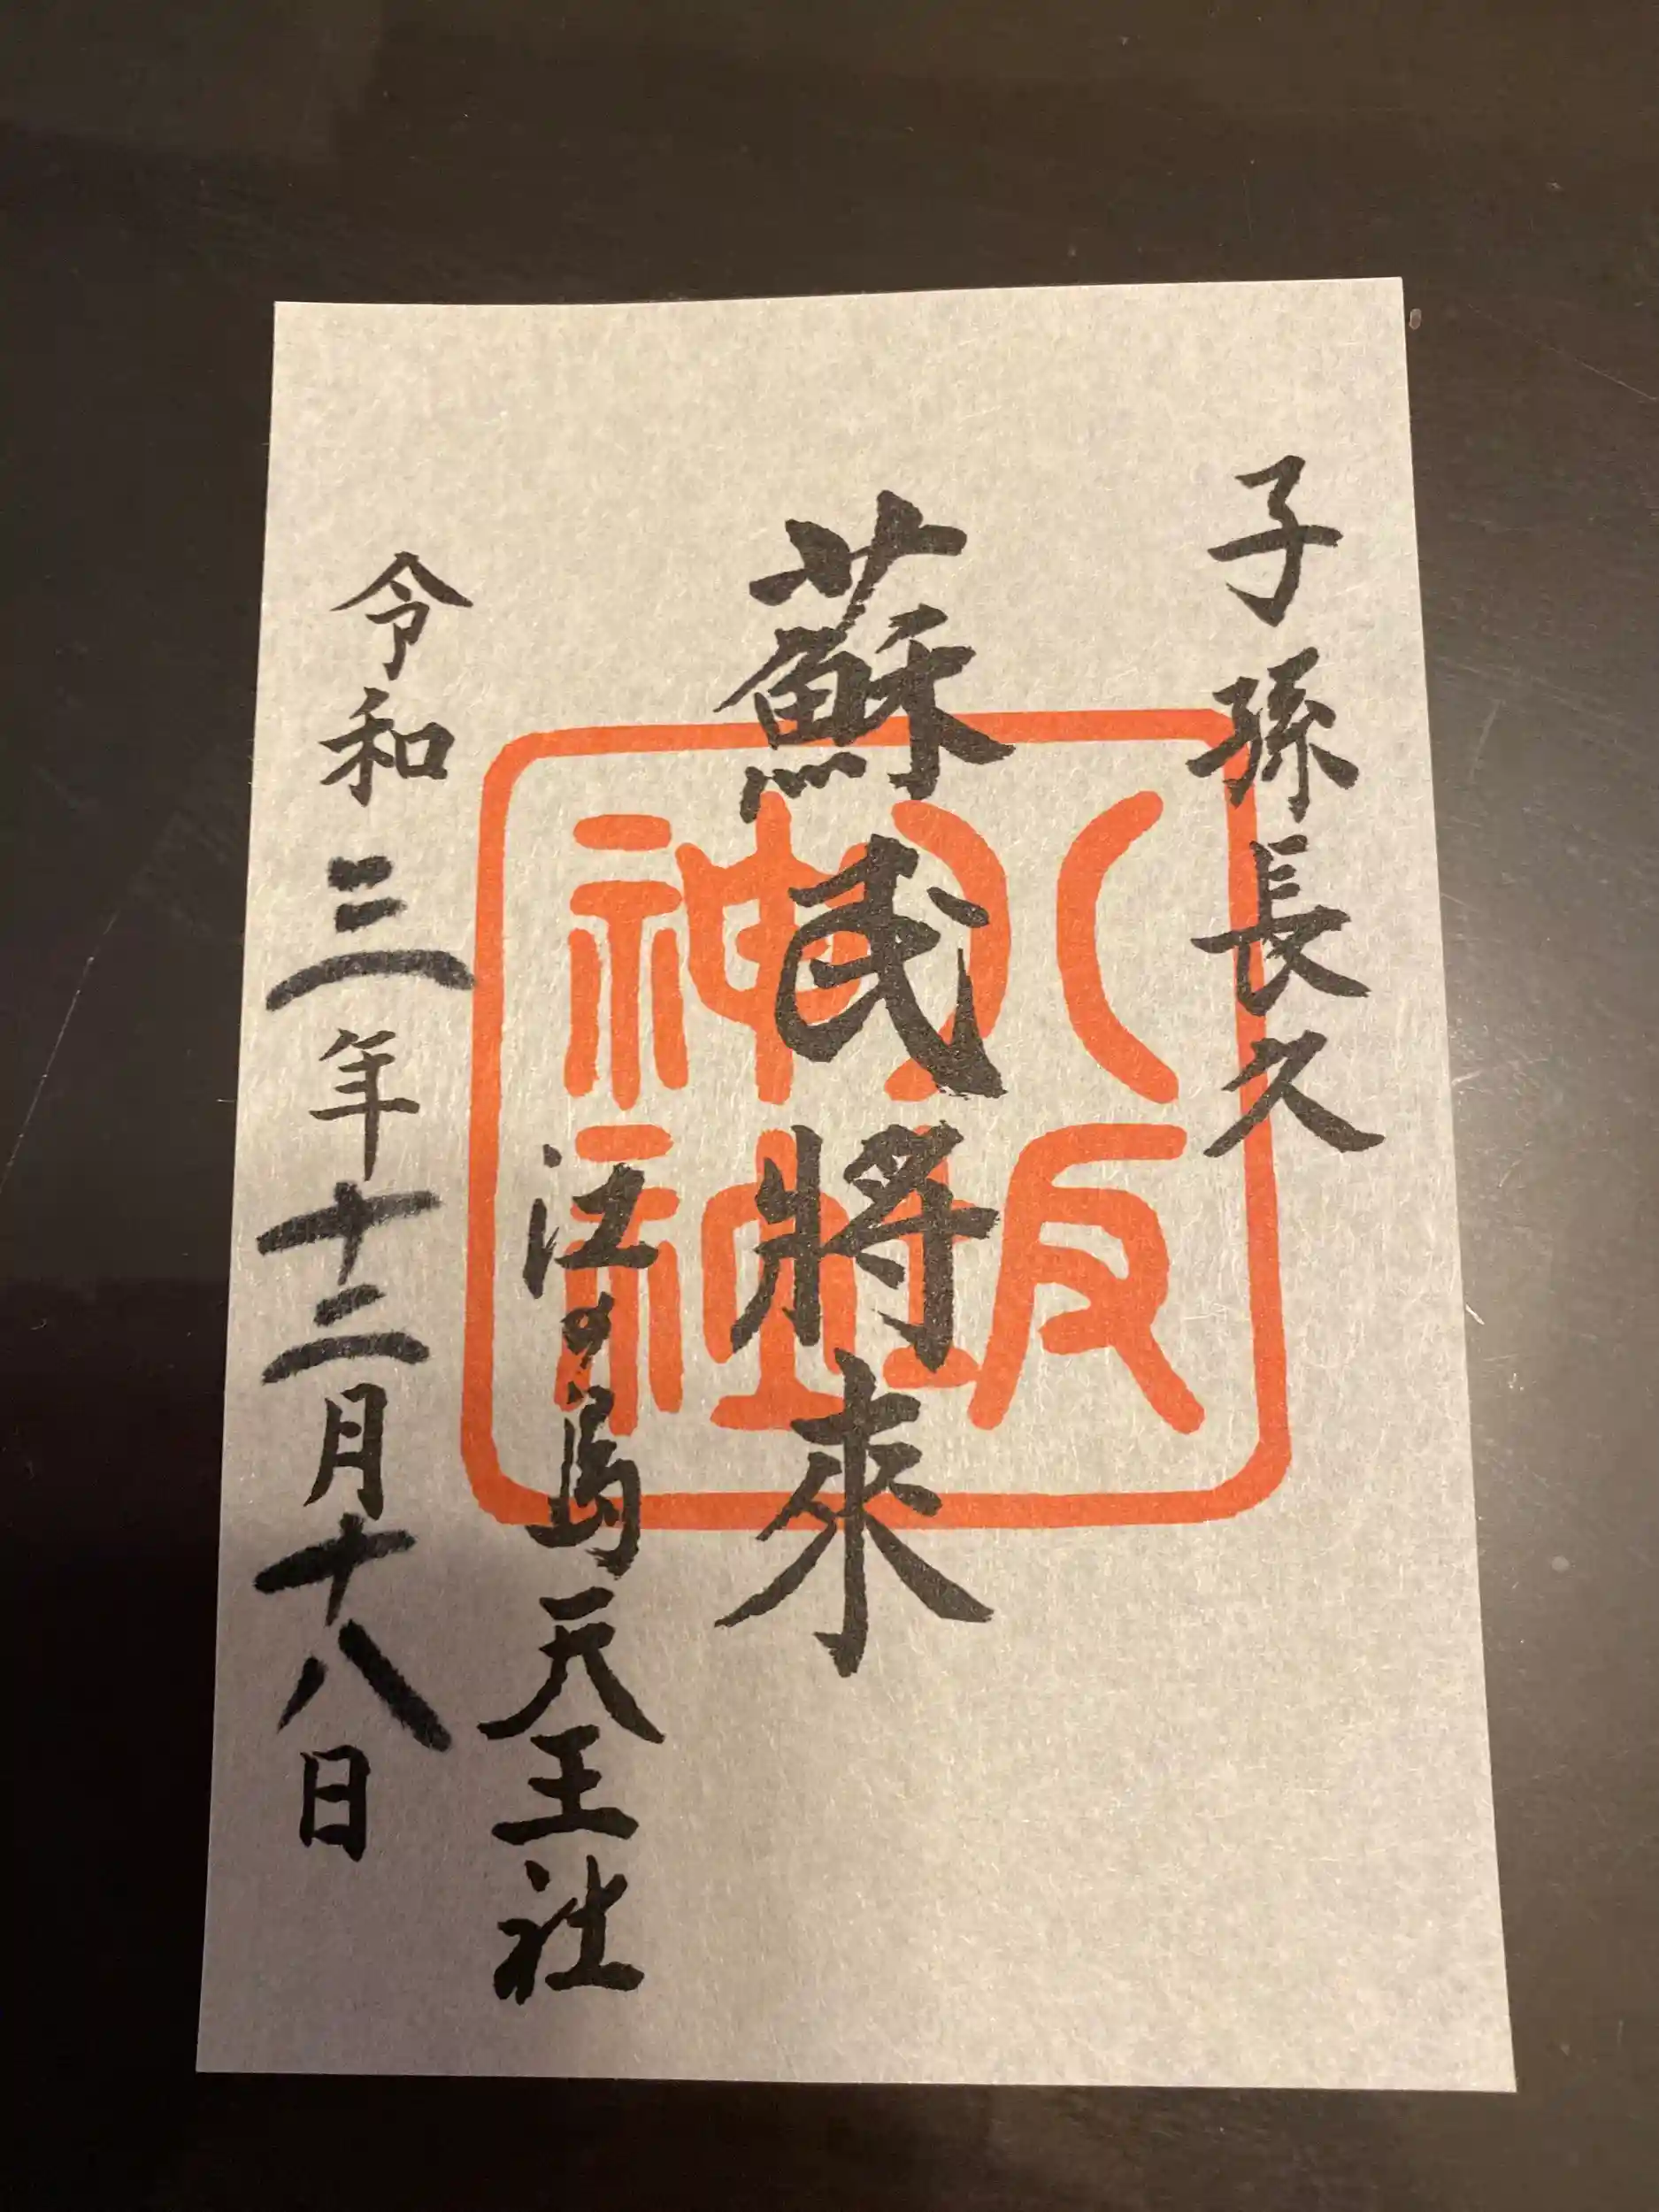 子孫長久
蘇民將來
江の島天王社
令和三年十二月十八日
八坂
神社